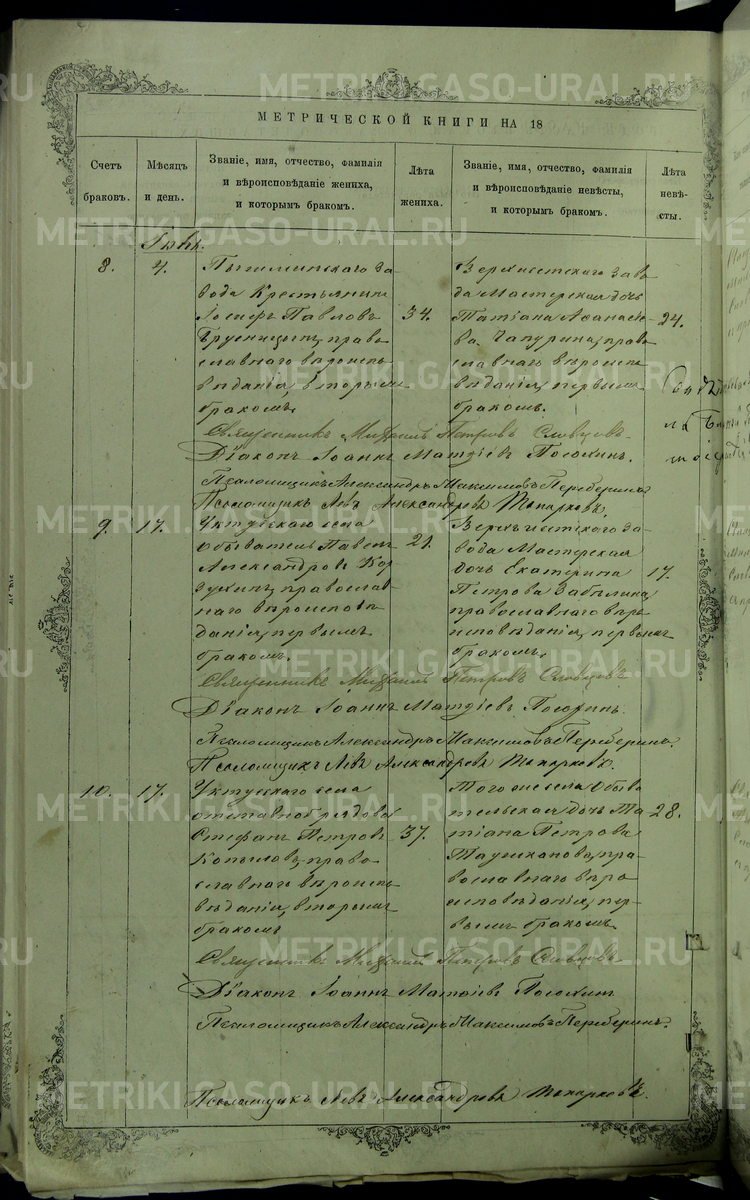 МЕТРИЧЕСКОЙ КНИГИ НА 18
Счетъ браковъ.
Мѣсяцъ и день.
Званіе, имя, отчество, фамилія
и вѣроисповѣданіе жениха,
и которымъ бракомъ.
Лѣта жениха.
Званіе, имя, отчество, фамилія
и вѣроисповѣданіе невѣсты,
и которымъ бракомъ.
Лѣта невѣсты.
8.
4.
Пышминскаго за-
вода Крестьянинъ
Іосифъ Павловъ
Брусницынъ, право-
славнаго вѣроиспо-
вѣданія, вторымъ
бракомъ.
34.
Верхисетскаго заво-
да Мастерская дочь
Татіана Афанасье-
ва Чапурина, право-
славнаго вѣроиспо-
вѣданія, первымъ
бракомъ.
24.
Священникъ Михаилъ Петровъ Словцовъ.
Діаконъ Іоаннъ Матѳіевъ
Псаломщикъ Александръ Максимовъ Переберинъ.
Псаломщикъ Левъ Александровъ Топорковъ.
9.
17.
Уктусскаго села
обыватель Павелъ
Александровъ
православ-
наго вѣроиспо-
данія, первымъ
бракомъ.
21.
Верхъисетскаго за-
вода Мастерская
дочь Екатерина
Петрова
православнаго вѣро-
исповѣданія, первымъ
бракомъ.
17.
Священникъ Михаилъ Петровъ Словцовъ.
Діаконъ Іоаннъ Матѳіевъ
Псаломщикъ Александръ Максимовъ Переберинъ.
Псаломщикъ Левъ Александровъ Топорковъ.
10.
17.
Уктусскаго села
отставной рядовой
Стефанъ Петровъ
Копыловъ, право-
славнаго вѣроиспо-
вѣданія, вторымъ
бракомъ
37.
Того же села Обыва-
тельская дочь Та-
тіана Петрова
пра-
вославнаго вѣро-
исповѣданія, пер-
вымъ бракомъ.
28.
Священникъ Михаилъ Петровъ Словцовъ.
Діаконъ Іоаннъ Матѳіевъ
Псаломщикъ Александръ Максимовъ Переберинъ.
Псаломщикъ Левъ Александровъ Топорковъ.
METRIKI.GASO-URAL.RU